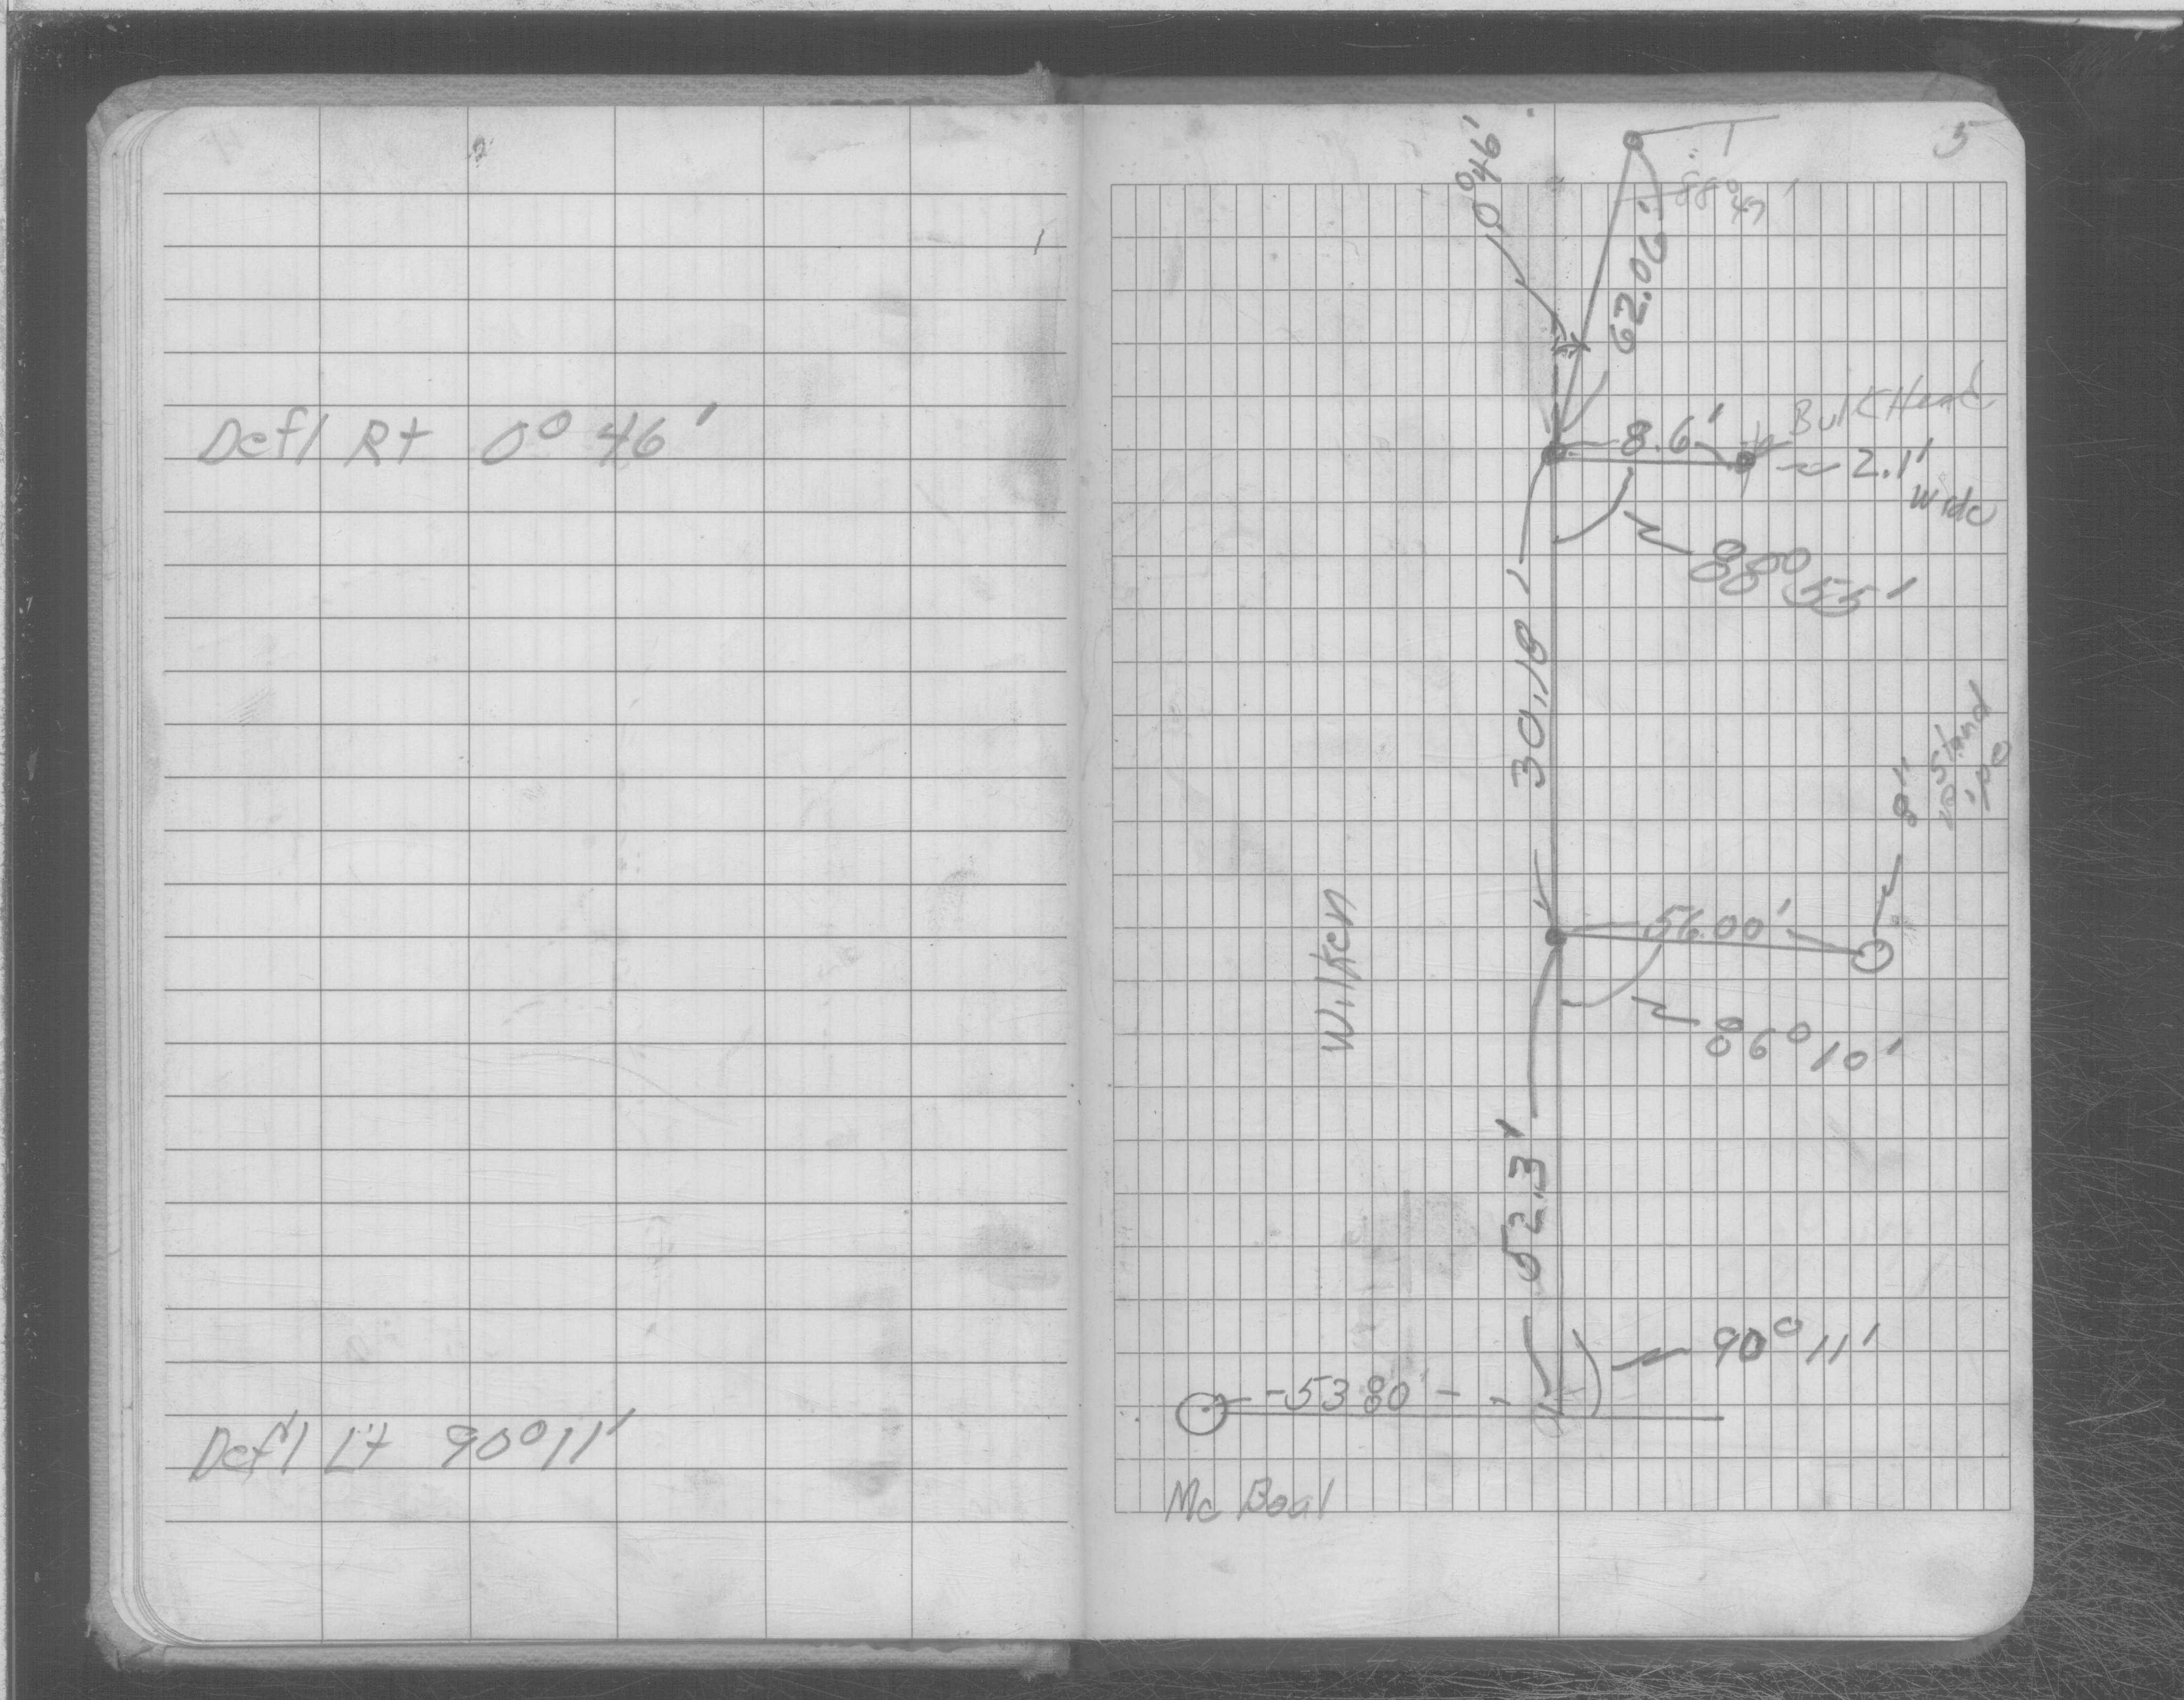 Defl Rt 0° 46'
Defl Lt 90° 11'
5
0° 46'
88° 47'
62.06'
8.6'
BulkHead
2.1'
wide
88° 55'
30.18'
8"
Stand
Wilken
56.00'
86° 10'
52.3'
90° 11'
53 80
Mc Boal